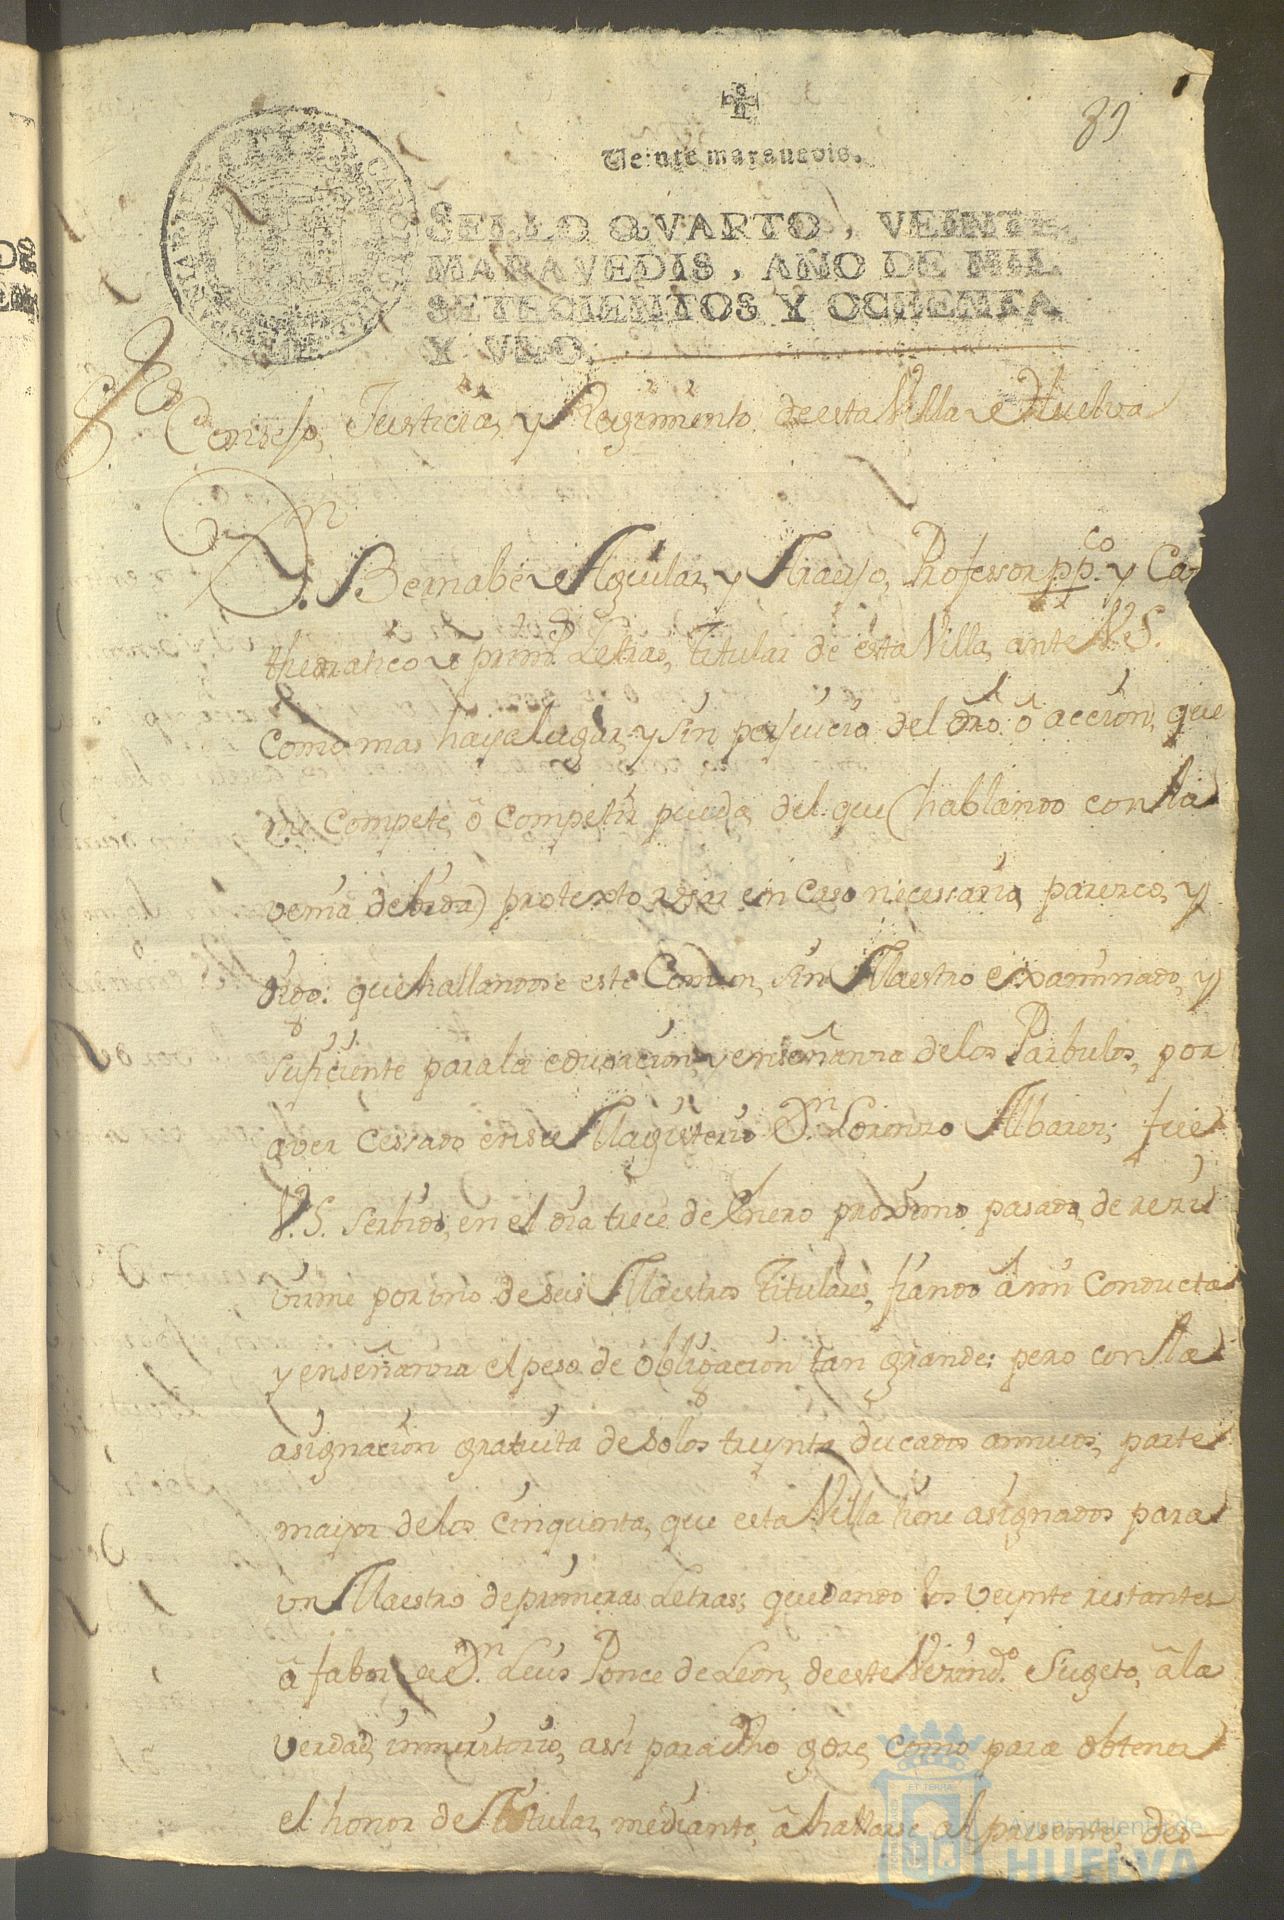 89
Veinte maravedis.
SELLO QVARTO, VEINTE
MARAVEDIS, AÑO DE MIL
SETECIENTOS Y OCHENTA
Y VNO.
Consejo, Justicia, y Regimiento de esta Villa de Huelva
Dn. Bernabé Aguilar, y Araujo, Professor ppco. y Ca-
thedratico de prims. Letras, Titular de esta Villa, ante V.S.
como mas haya lugar, y sin perjuicio del dro. ô accion, que
me compete, ô competir pueda, del que (hablando con la
venia debida) protexto usar en caso necessario, parezco, y
digo: que hallandose este Comun, sin Maestro examinado, y
suficiente para la educacion, y enseñanza de los Parbulos, por
aver cessado en su Magisterio Dn. Lorenzo Albarez; fue
V.S. serbido, en el dia trece de Enero proximo pasado, de reci-
virme por uno de sus Maestros Titulares, fiando â mi conducta
y enseñanza el peso de obligacion tan grande: pero con la
asignacion gratuita de solos treynta ducados annuos, parte
mayor de los cinquenta, que esta Villa tiene asignados para
un Maestro de primeras Letras; quedando los veynte restantes
â fabor de Dn. Luis Ponce de Leon, de este Vezindo. Sugeto, â la
verdad, inmeritorio, assi para dho goze, como para obtener
el honor de Titular, mediante, â hallarse al presente, des-
Ayuntamiento de
HUELVA